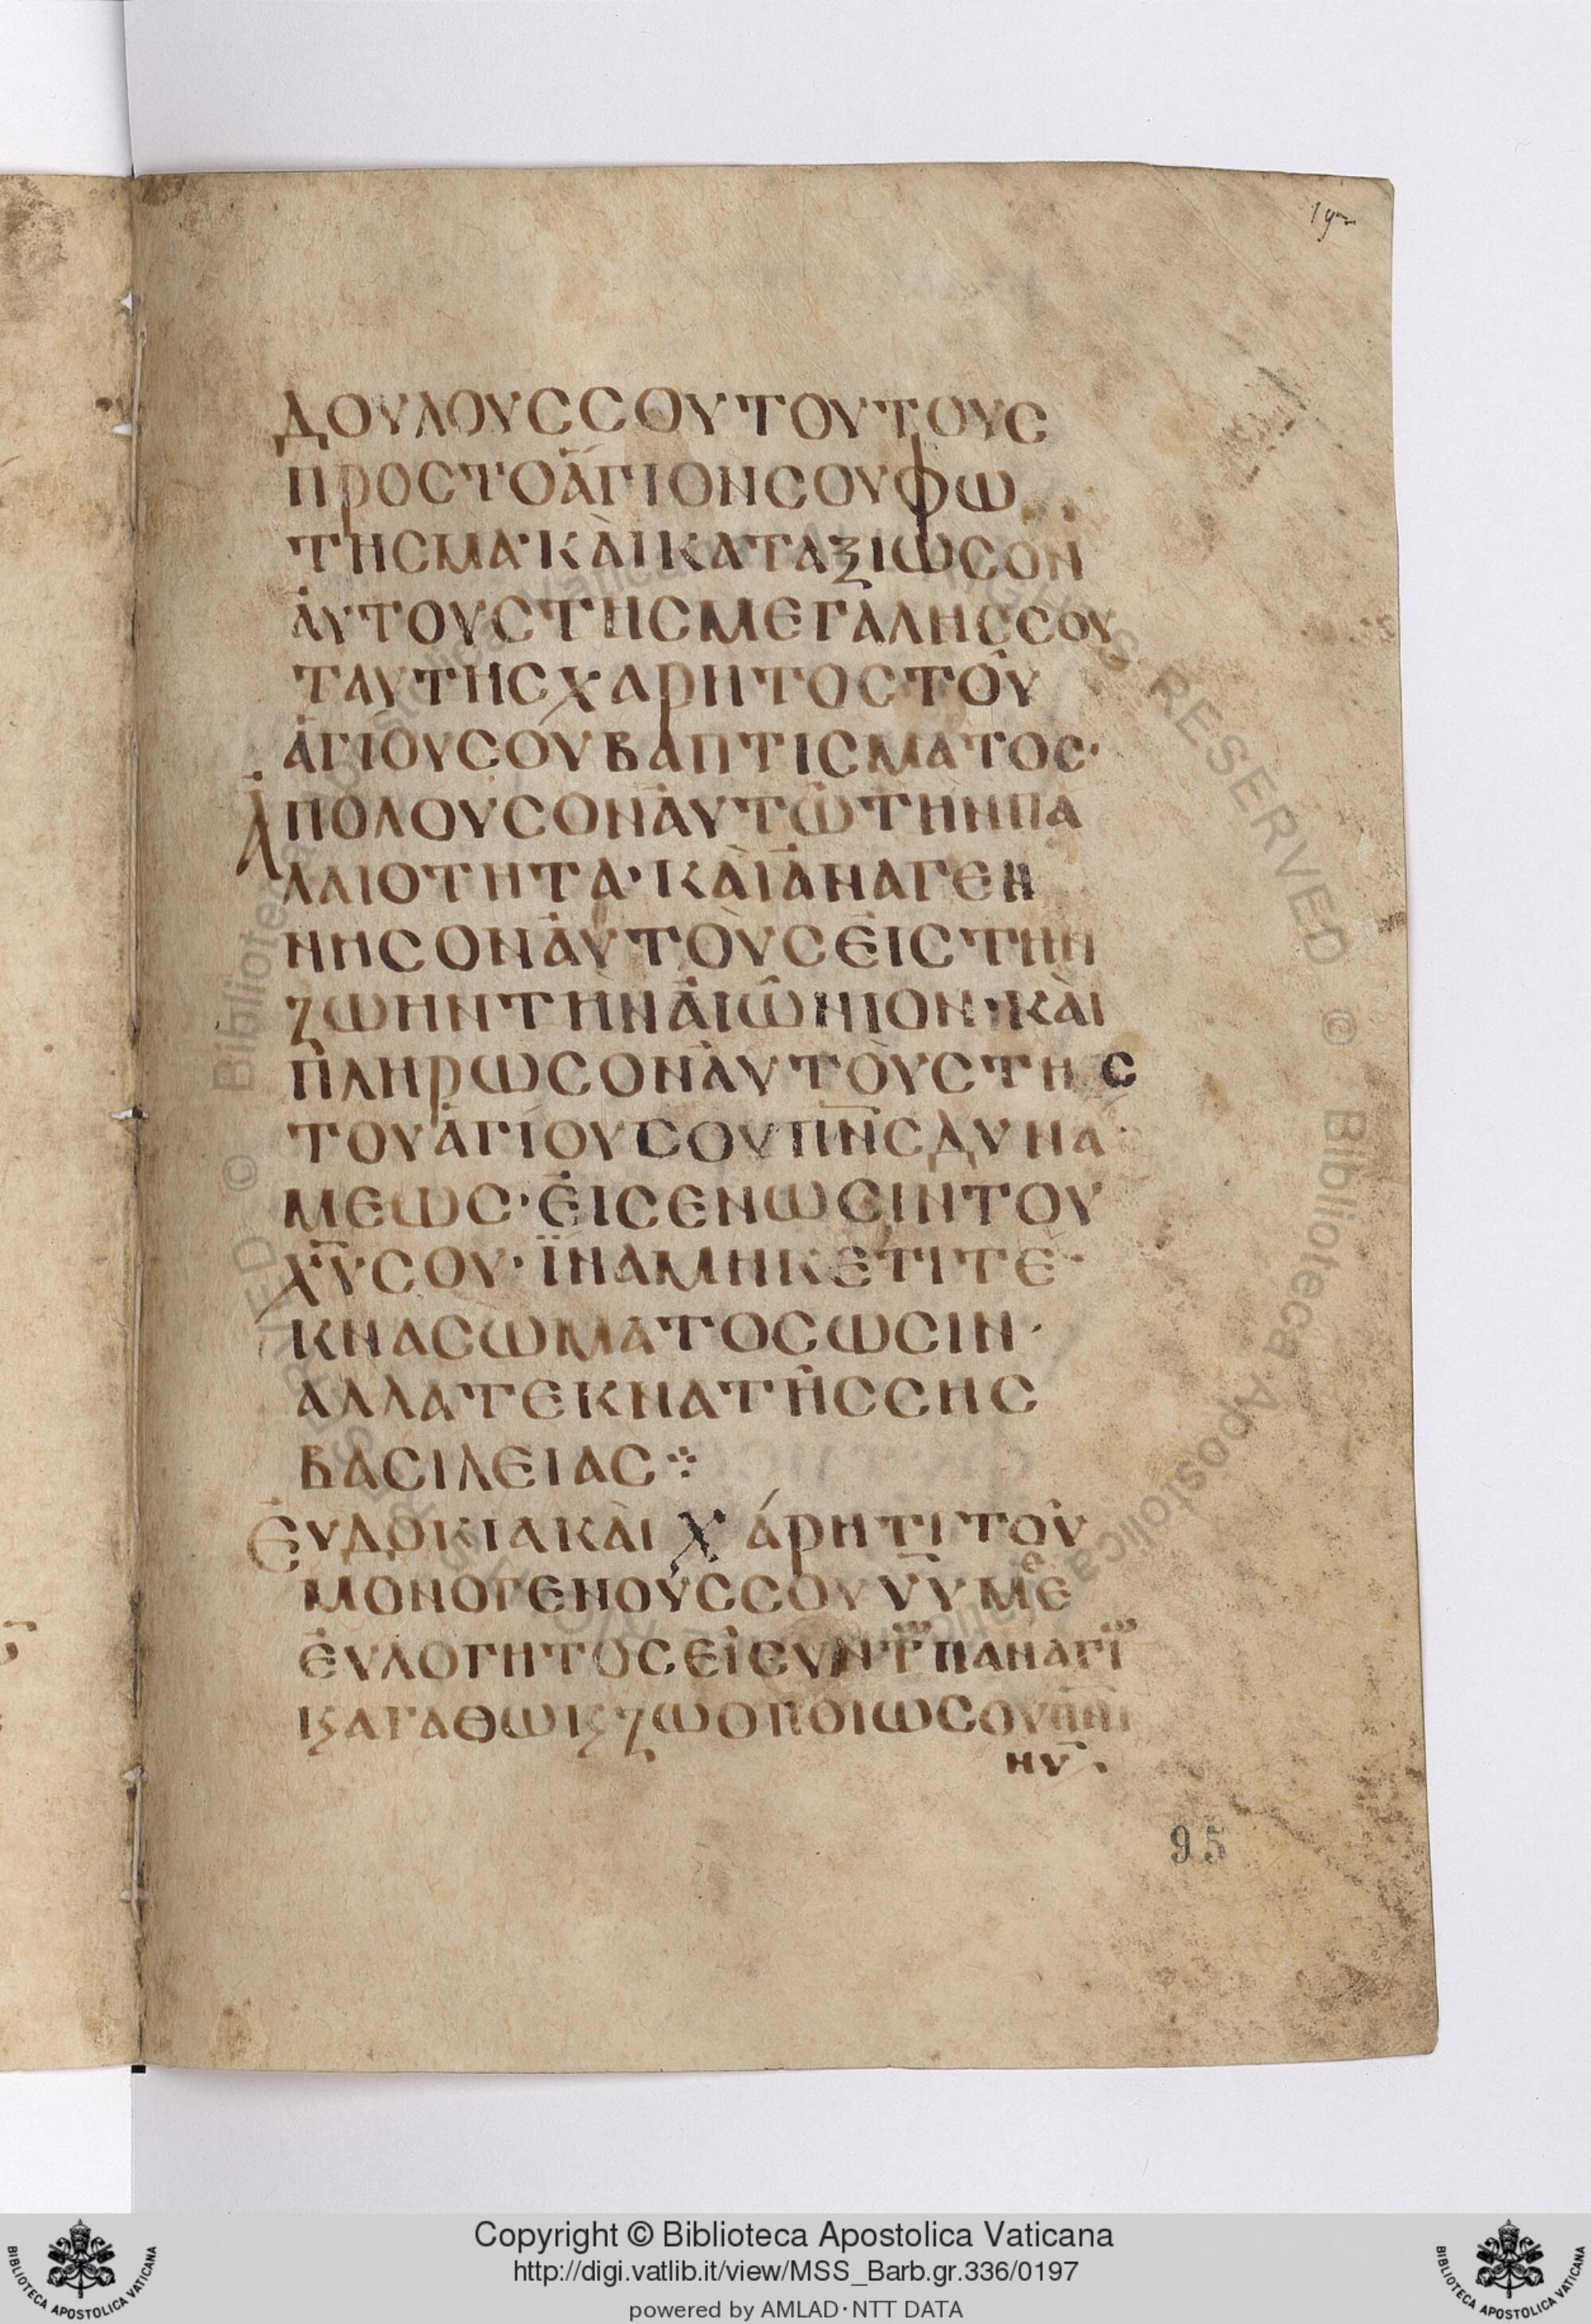 192
ΔΟΥΛΟΥСϹΟΥΤΟΥΤΟΥϹ
ΠΡΟϹΤΟἉΓΙΟΝϹΟΥΦΩ
ΤΗϹΜΑ·ΚᾺΙΚΑΤΑΞΙΩϹΟΝ
ἈΥΤΟΥϹΤΗϹΜΕΓΆΛΗϹϹΟΥ
ΤΑΥΤΗϹΧΑΡΗΤΟϹΤΟΥ
ἉΓΙΟΥϹΟΥΒΑΠΤΙϹΜΑΤΟϹ·
ἈΠΟΛΟΥϹΟΝἈΥΤΩ͂ΤΗΝΠΑ
ΛΑΙΟΤΗΤΑ·ΚᾺΙἈΝΑΓΕΝ
ΝΗϹΟΝἈΥΤΟῪϹἘΙϹΤΗΝ
ΖΩΗΝΤΗΝἈΙΩ͂ΝΙΟΝ·ΚᾺΙ
ΠΛΗΡΩϹΟΝἈΥΤΟῪϹΤΗϹ
ΤΟΥἉΓΊΟΥϹΟΥΠΝ̅ϹΔΥΝΑ
ΜΕΩϹ·ἘΙϹΕΝΩϹΙΝΤΟΥ
ΧΥ̅ϹΟΥ·ΪΝΑΜΗΚΕΤΙΤΕ
ΚΝΑϹΩΜΑΤΟϹΩϹΙΝ·
ΑΛΛΑΤΕΚΝΑΤΗ͂ϹϹΗϹ
ΒΑϹΙΛΕΙΑϹ⁘
ἘΥΔΟΚΙΑΚᾺΙΧΆΡΗΤΙΤΟΥ
ΜΟΝΟΓΕΝΟΥϹϹΟΥΥ̅ΥΜΕ
ἘΥΛΟΓΗΤΟϹΕΙϹΥΝΤΠΑΝΑΓΙ
ϏΑΓΑΘΩϏΖΩΟΠΟΙΩϹΟΥΠΝΙ
ΝΥ̅·
95
Copyright © Biblioteca Apostolica Vaticana
http://digi.vatlib.it/view/MSS_Barb.gr.336/0197
powered by AMLAD·NTT DATA
BIBLIOTECA APOSTOLICA VATICANA
BIBLIOTECA APOSTOLICA VATICANA